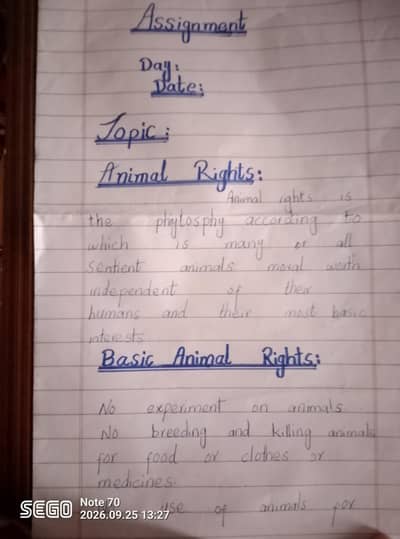 Assignment
Day:
Date:
Topic:
Animal Rights:
Animal ights is
the phylosphy according to
which is many or all
sentient animals moral worth
independent of their
humans and their most basic
interests
Basic Animal Rights:
No experiment on animals
No breeding and killing animals
for food or clothes or
medicines.
use of animals for
SEGO Note 70
2026.09.25 13:27